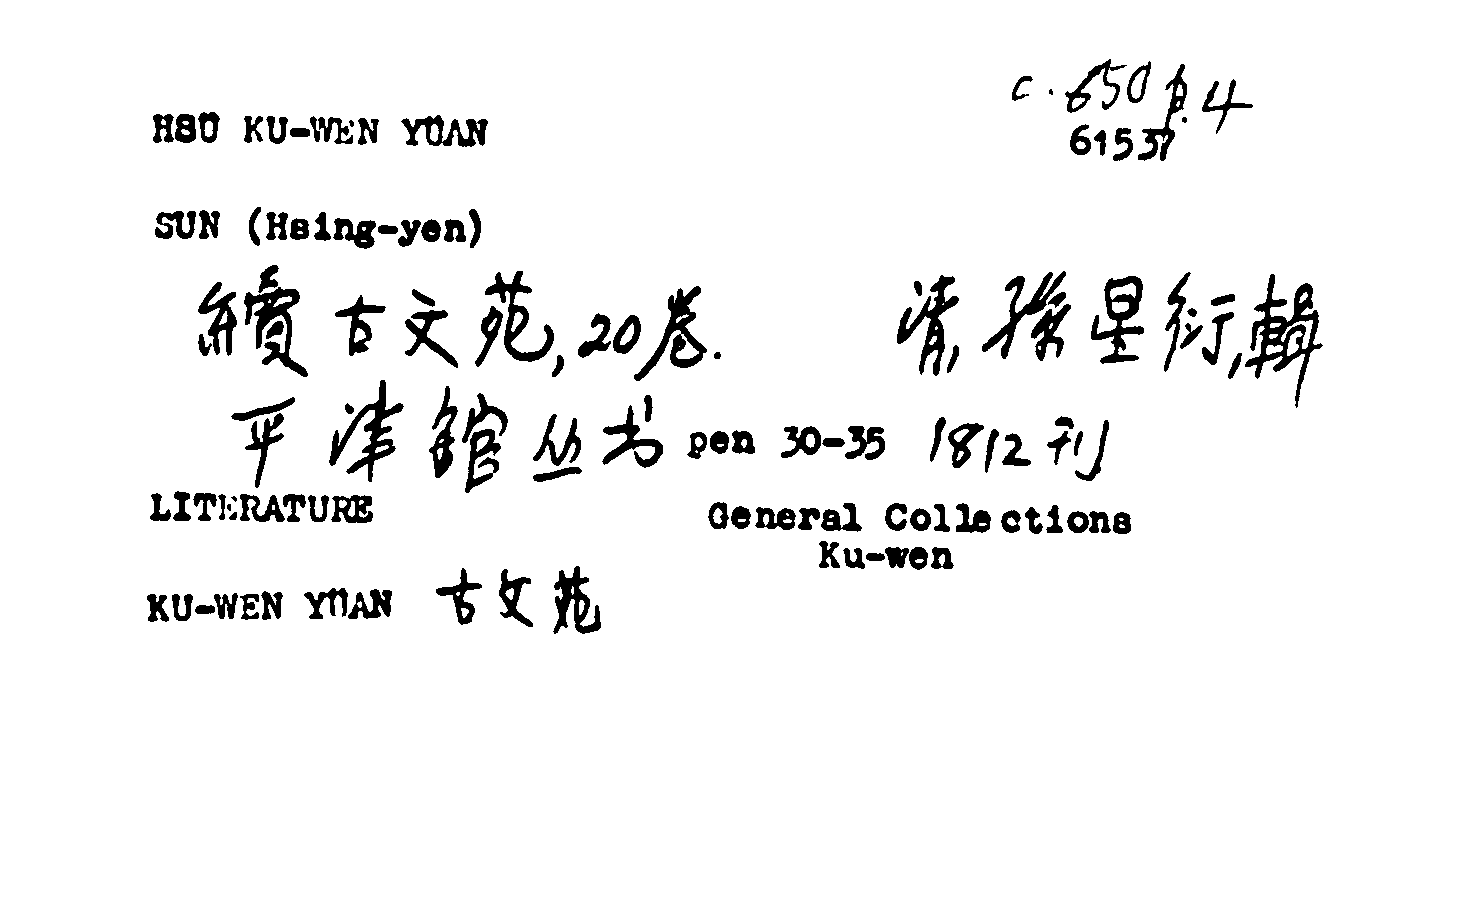 c. 650 p.4
HSÜ KU-WEN YÜAN
61537
SUN (Hsing-yen)
續古文苑, 20卷. 清, 孫星衍, 輯
平津館丛书 pen 30-35 1812刊
LITERATURE
General Collections
Ku-wen
KU-WEN YÜAN 古文苑